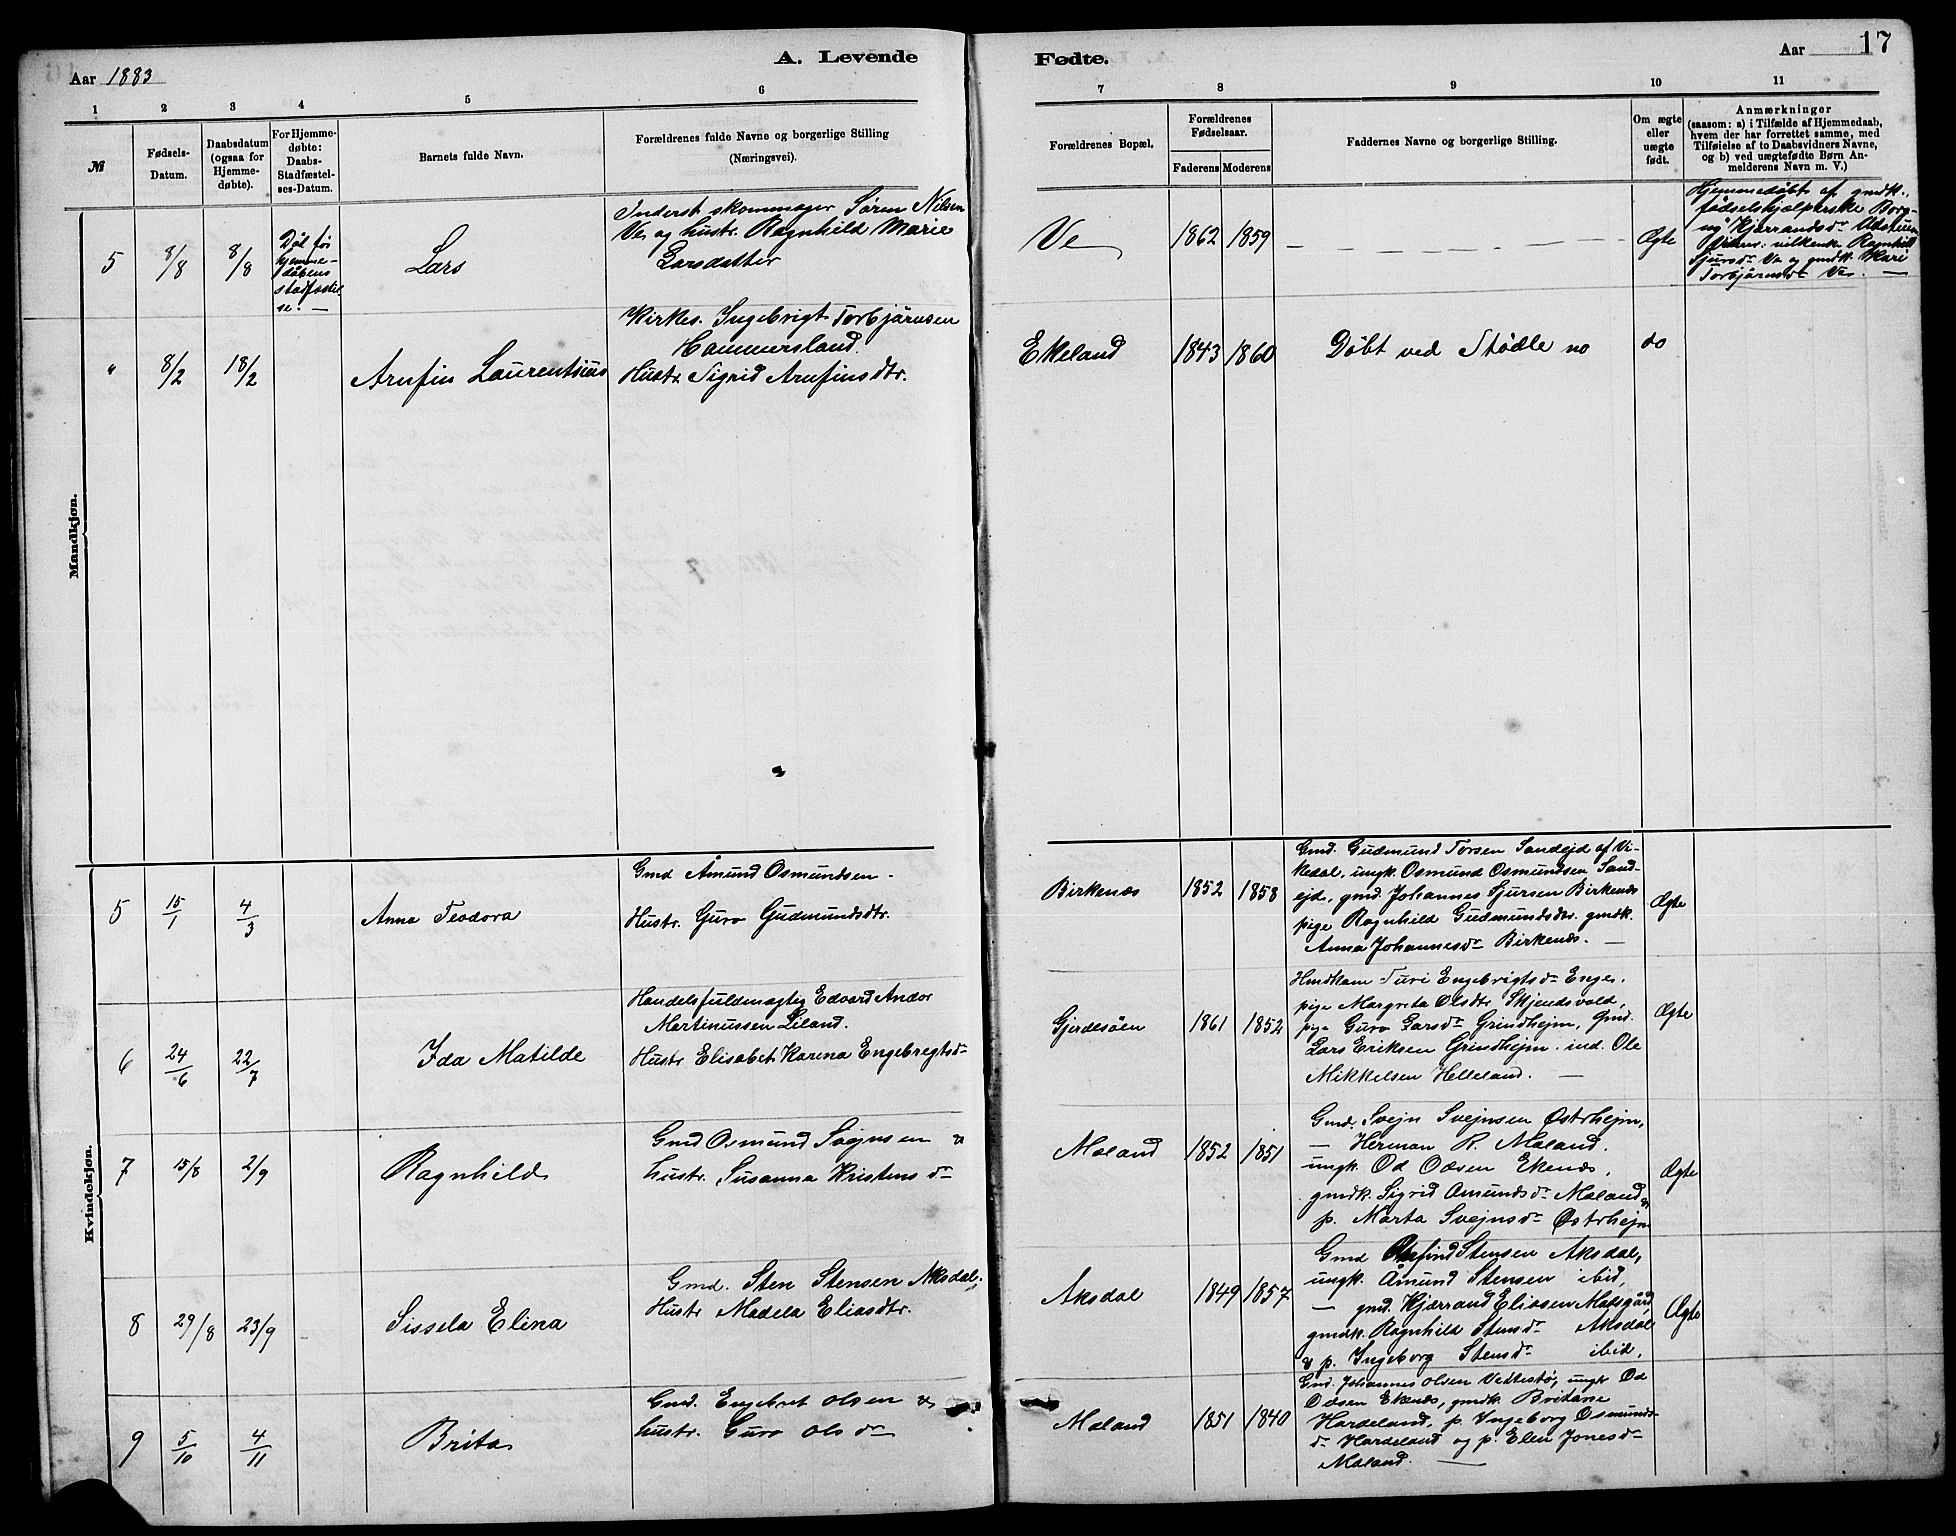 Aar 1883
A. Levende
Fødte.
Aar
17
1 2 3 4 5 6 7 8 9 10 11
№
Fødsels-
Datum.
Daabsdatum
(ogsaa for
Hjemme-
døbte).
For Hjemme-
døbte:
Daabs-
Stadfæstel-
ses-Datum.
Barnets fulde Navn.
Forældrenes fulde Navne og borgerlige Stilling
(Næringsvei).
Forældrenes Bopæl.
Forældrenes
Fødselsaar.
Faderens Moderens
Faddernes Navne og borgerlige Stilling.
Om ægte
eller
uægte
født.
Anmærkninger
(saasom: a) i Tilfælde af Hjemmedaab,
hvem der har forrettet samme, med
Tilføielse af to Daabsvidners Navne,
og b) ved uægtefødte Børn An-
melderens Navn m. V.)
Mandkjøn.
5
8/8
8/8
Död för
hjemme-
dåbens
stadfæstel-
se. —
Lars
Inderst skommager Sören Nilsen
Ve og hustr. Ragnhild Marie
Larsdatter
Ve
1862
1859
— — — — — —
Ægte
Hjemmedöbt af gmdk.
födselshjælperske Borg-
ny Kjærrandsdr
vitner Ragnhild
Sjursdr Ve og gmdk. Mari
Torbjörnsdr Ve. —
"
8/2
18/2
Arnfin Laurentsius
Kirkes. Ingebrigt Torbjörnsen
Hammersland.
Hustr. Sigrid Arnfinsdtr.
Ekeland
1843
1860
Döbt ved Stödle no
do
Kvindekjøn.
5
15/1
4/3
Anna Teodora
Gmd Åmund Osmundsen.
Hustr. Guro Gudmundsdtr.
Birkenæs
1852
1858
Gmd. Gudmund Torsen Sandejd af Vi-
kedal, ungk. Osmund Osmundsen Sand-
ejd, gmd. Johannes Sjursen Birkenæs
pige Ragnhild Gudmundsdtr. gmdk.
Anna Johannesdr Birkenæs. —
Ægte
6
24/6
22/7
Ida Matilde
Handelsfuldmægtig Edvard Andor
Martinussen Liland.
Hustr Elisabet Karena Engebregtsdr
Gjerdesöen
1861
1852
Turi Engebrigtsdr Enge.
pige Margreta Olsdtr Skjendsvold,
pige Guro Larsdr Grindhejm, Gmd.
Lars Eriksen Grindhejm. ind. Ole
Mikkelsen Helleland. —
Ægte
7
15/8
2/9
Ragnhild
Gmd Osmund Svejnsen &
hustr. Susanna Kristensdr
Mæland
1852
1851
Gmd. Svejn Svejnsen Østrhejm,
— Herman R. Mæland.
ungk. Od Odsen Ekenæs,
gmdk. Sigrid Amundsdr Mæland &
p. Marta Svejnsdr Østrhejm
Ægte
8
29/8
23/9
Sissela Elina
Gmd. Sten Stensen Aksdal.
Hustr Madela Eliasdtr.
Aksdal
1849
1857
Gmd Stensen Aksdal,
ungk. Åmund Stensen ibid,
— gmd. Kjærrand Eliasen Matsgård,
gmdk. Ragnhild Stensdr Aksdal
& p. Ingeborg Stensdr ibid.
Ægte
9
5/10
4/11
Brita
Gmd. Engebret Olsen &
hustr. Guro Olsdr
Mæland
1851
1840
Gmd. Johannes Olsen Vettestö, ungk Od
Odsen Ekenæs, gmdk. Britane
Hardeland, p. Ingeborg Osmunds-
dr Hardeland og p. Elen Jonesdr
Mæland. —